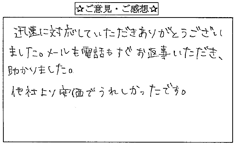 ☆ご意見・ご感想☆
迅速に対応していただきありがとうござい
ました。メールも電話もすぐお返事いただき、
助かりました。
他社より安価でうれしかったです。